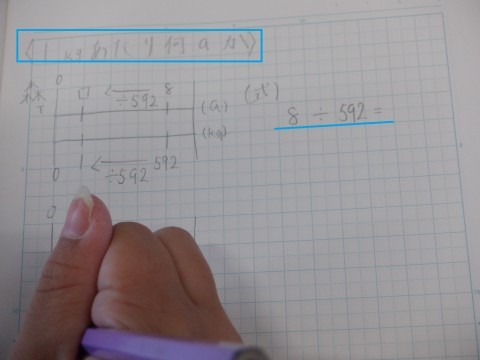 〈1kg あたり何a か〉
0 □ 8
÷592
(a)
(kg)
÷592 592
0
森
T
(式)
8 ÷ 592 =
0